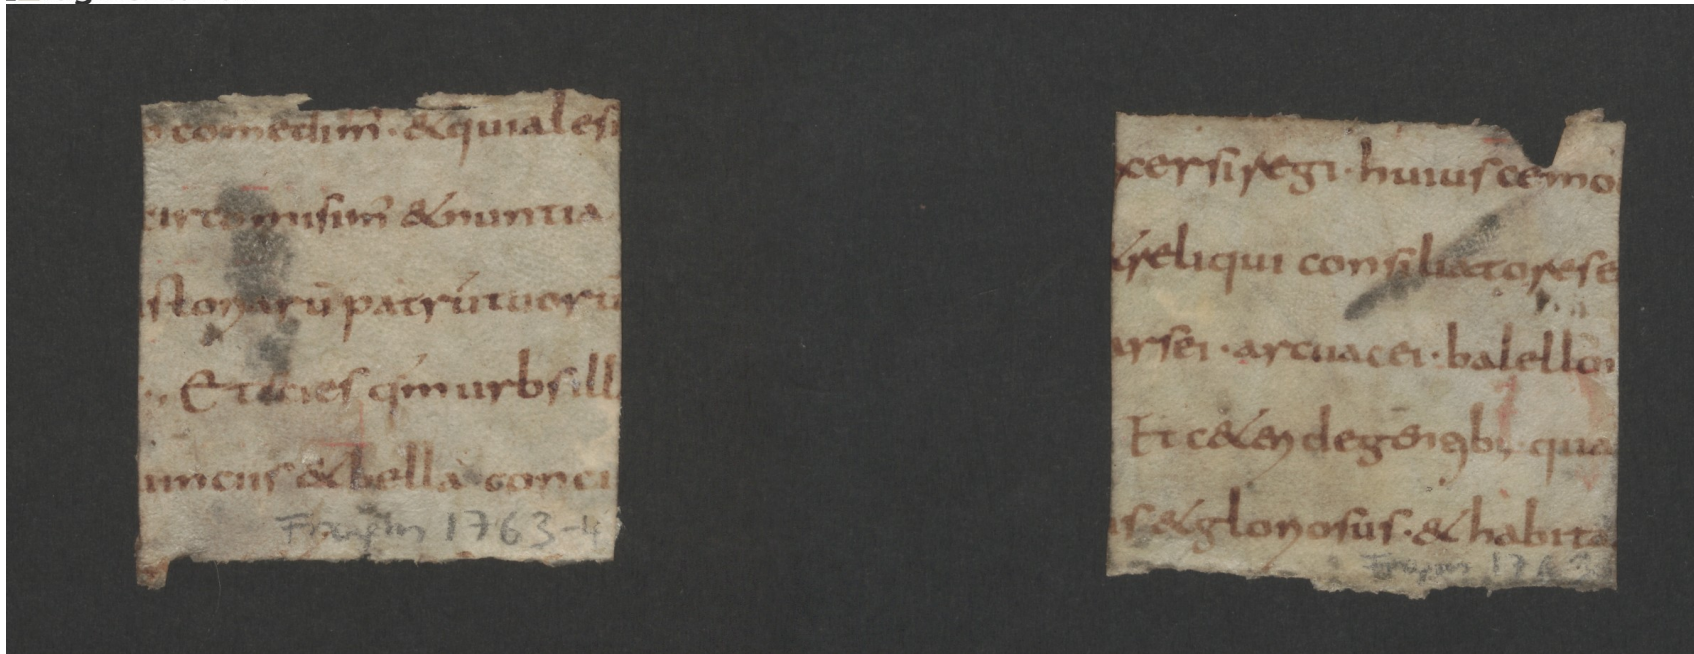 o comedim̄ · & quia lesi
circo misim̄ & nuntia
istoriarū patrū tuorū
Et scies qm̄ urbs ill
uincus & bella conci
Fragm 1763-4
xersi regi · huiuscemo
& reliqui consiliatores e
arsei · arcuacei · babelloni
Et c&eri de gentib; qua
us & gloriosus · & habita